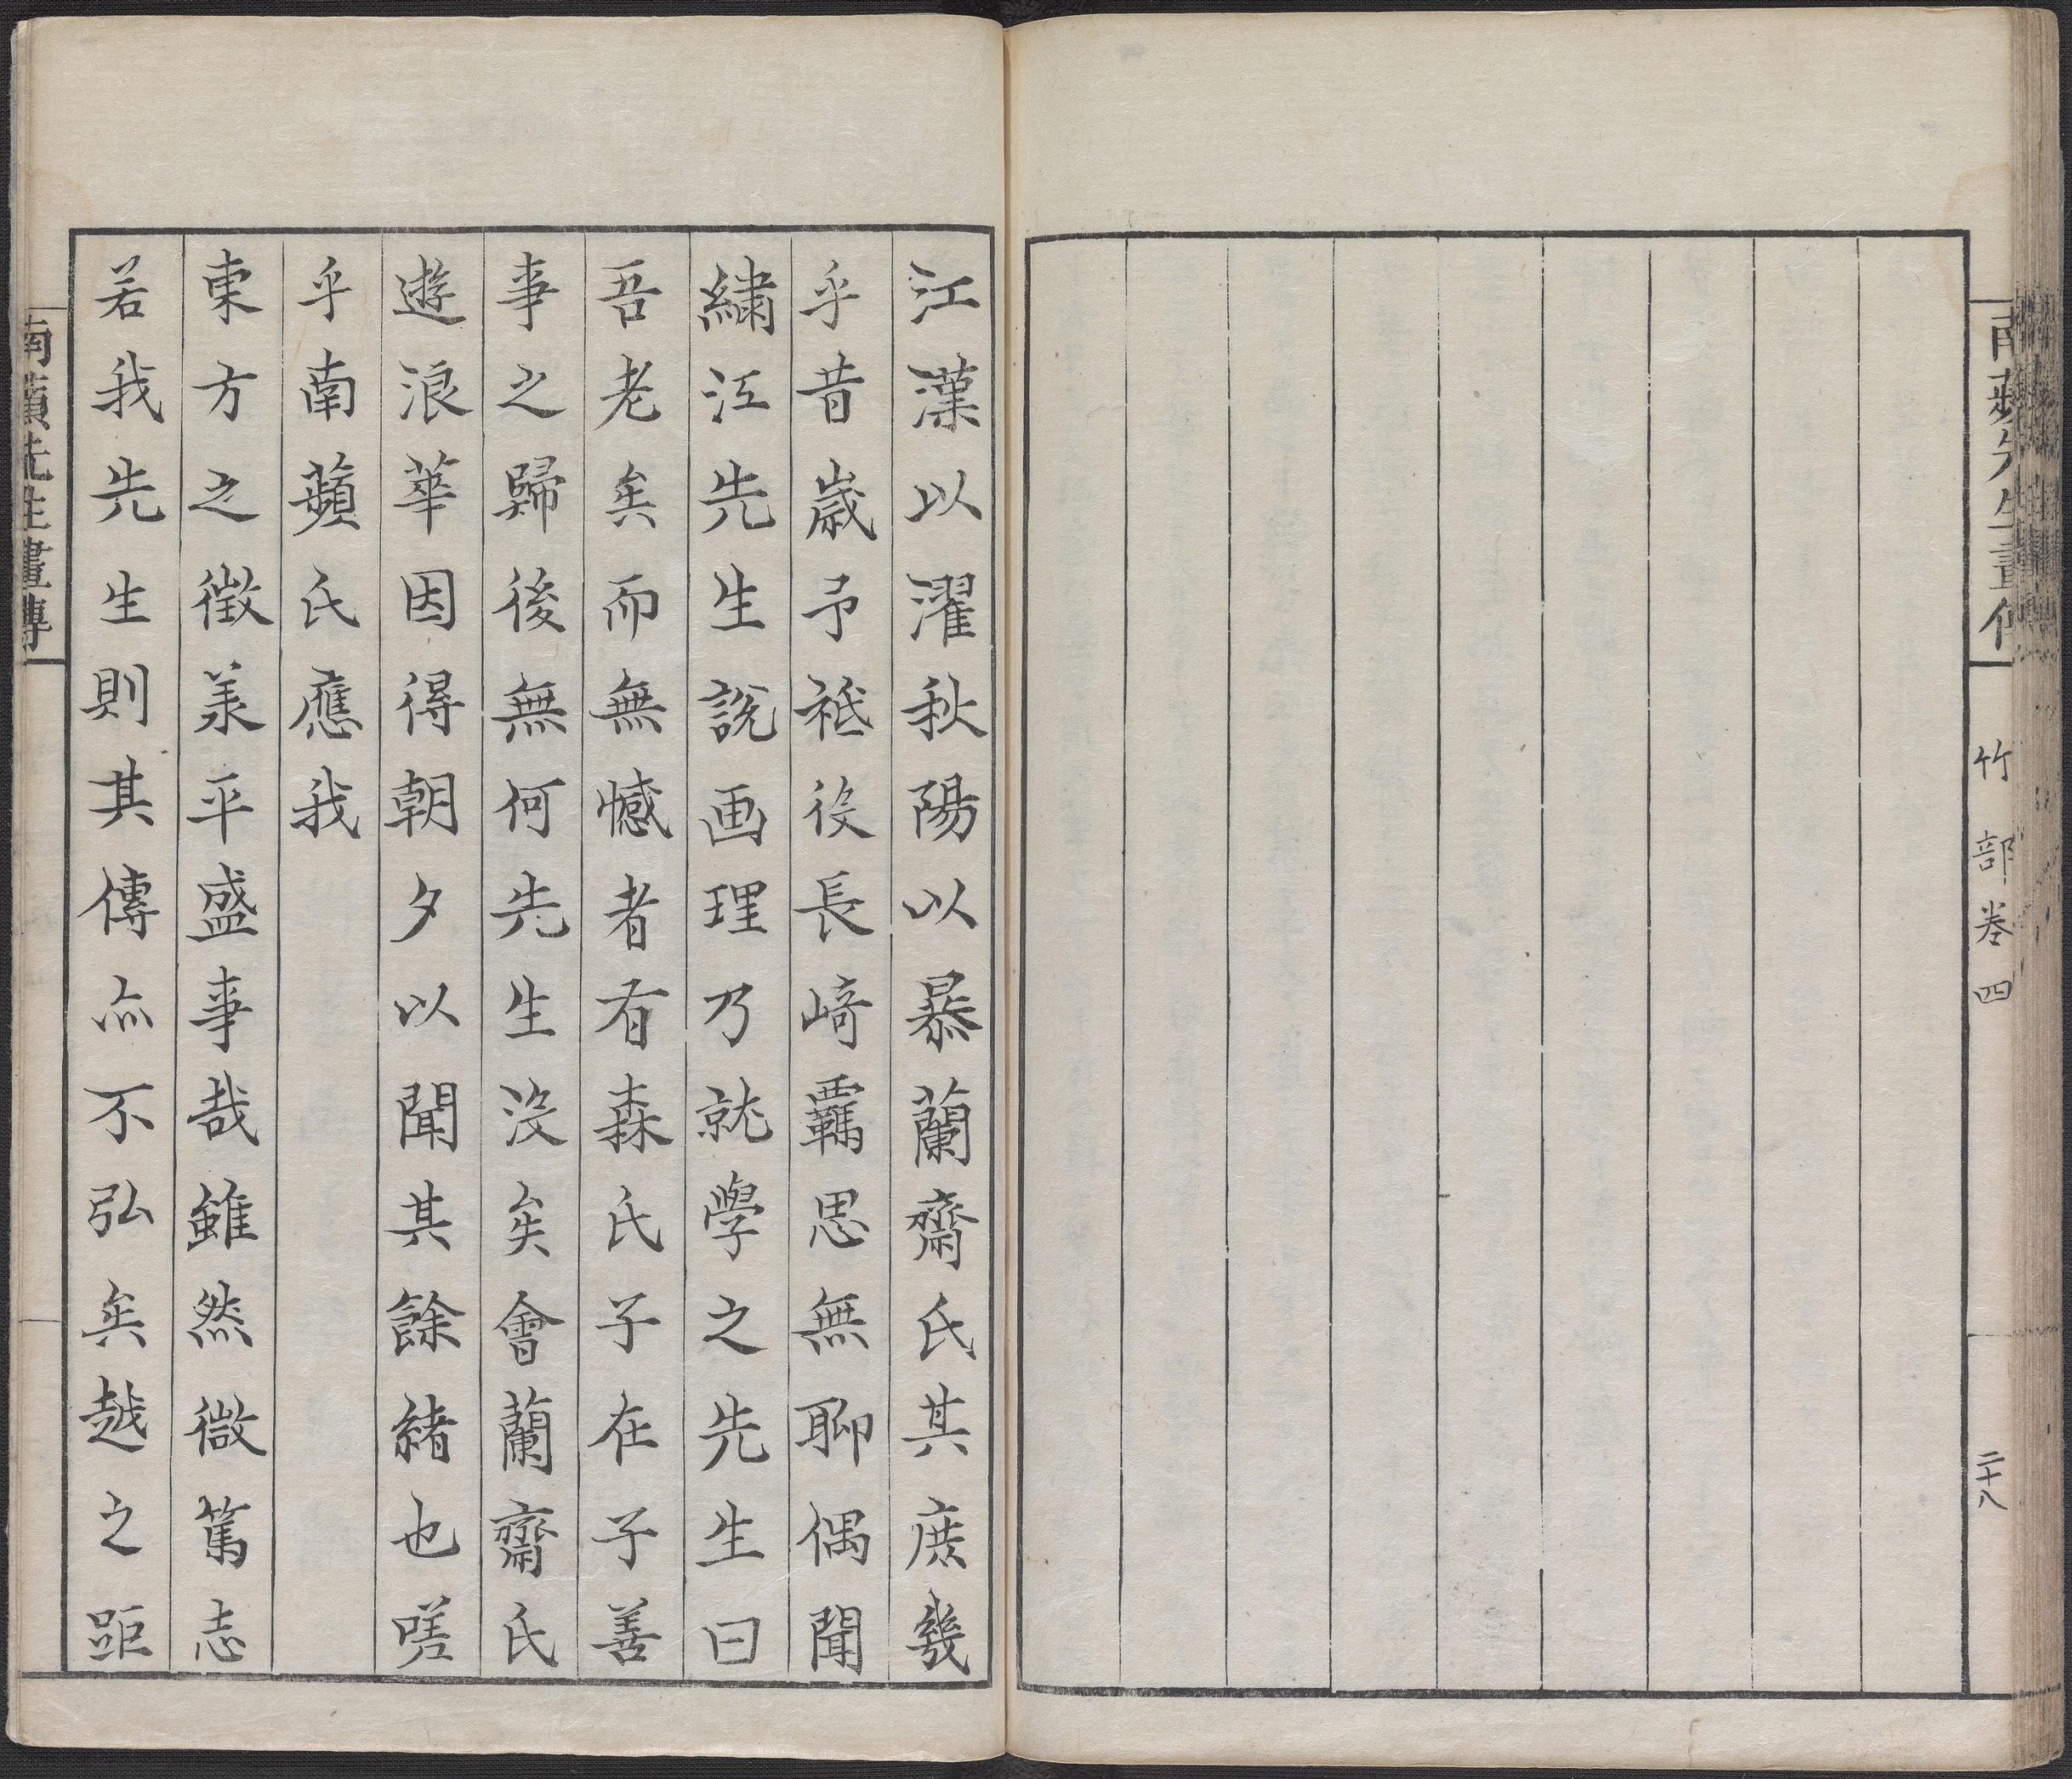 南蘋先生畫傳
竹部卷四
二十八
江漢以濯秋陽以暴蘭齋氏其庶幾
乎昔歲予祗役長崎羈思無聊偶聞
繡江先生說画理乃就學之先生曰
吾老矣而無憾者有森氏子在子善
事之歸後無何先生沒矣會蘭齋氏
遊浪華因得朝夕以聞其餘緒也嗟
乎南蘋氏應我
東方之徵羕平盛事哉雖然微篤志
若我先生則其傳亦不弘矣越之距
南蘋先生畫傳